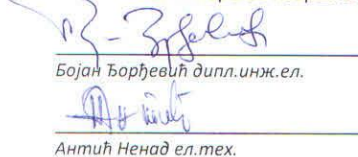 Бојан Ђорђевић дипл.инж.ел.
Антић Ненад ел.тех.